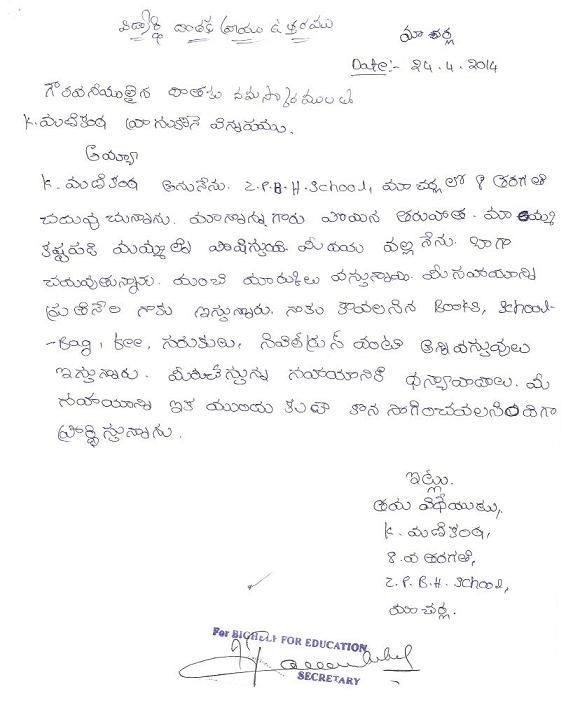 విద్యార్థి దాతకు రాయు ఉత్తరము
మాచర్ల
Date:- 24.4.2014
గౌరవనీయులైన దాతకు నమస్కారములతో
K. మణికంఠ వ్రాసుకొనే విన్నపము.
అయ్యా
K. మణికంఠ అనునేను. Z.P.B.H. School, మాచర్ల లో 8 తరగతి
చదువు చున్నాను. మా నాన్న గారు పోయిన తరువాత. మా అమ్మ
కష్టపడి మమ్మల్ని పోషిస్తుంది. మీ దయ వల్ల నేను. బాగా
చదువుతున్నాను. మంచి మార్కులు వస్తున్నాయి. మీ సహాయాన్ని
ప్రతినెల నాకు ఇస్తున్నారు. నాకు కావలసిన Books, School-
-Bag, సరుకులు, వంటి అన్ని వస్తువులు
ఇస్తున్నారు. మీరుచేస్తున్న సహాయానికి ధన్యవాదాలు. మీ
సహాయాన్ని ఇక ముందు కుడా కొన సాగించవలసిందిగా
ప్రార్థిస్తున్నాను.
ఇట్లు.
తమ విధేయుడు,
K. మణికంఠ,
8.వ తరగతి,
Z.P.B.H. School,
మాచర్ల.
For BIGHELP FOR EDUCATION
SECRETARY